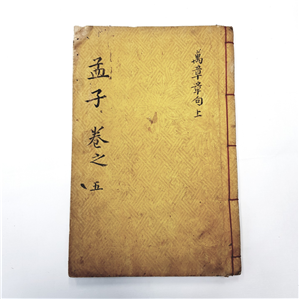 孟子 卷之五
萬章章句上